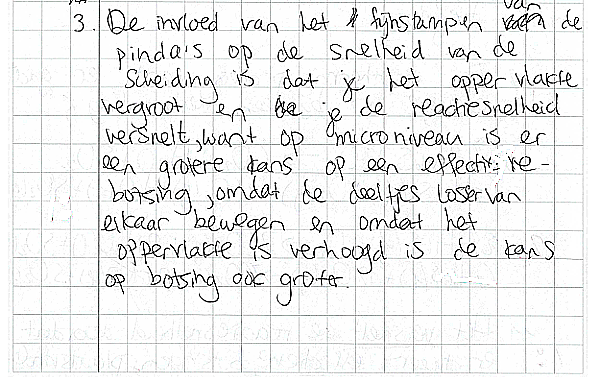 3. De invloed van het fijnstampen van de
pinda's op de snelheid van de
Scheiding is dat je het oppervlakte
vergroot en je de reactiesnelheid
versnelt, want op microniveau is er
een grotere kans op een effectieve
botsing, omdat de deeltjes loser van
elkaar bewegen en omdat het
oppervlakte is verhoogd is de kans
op botsing ook groter.